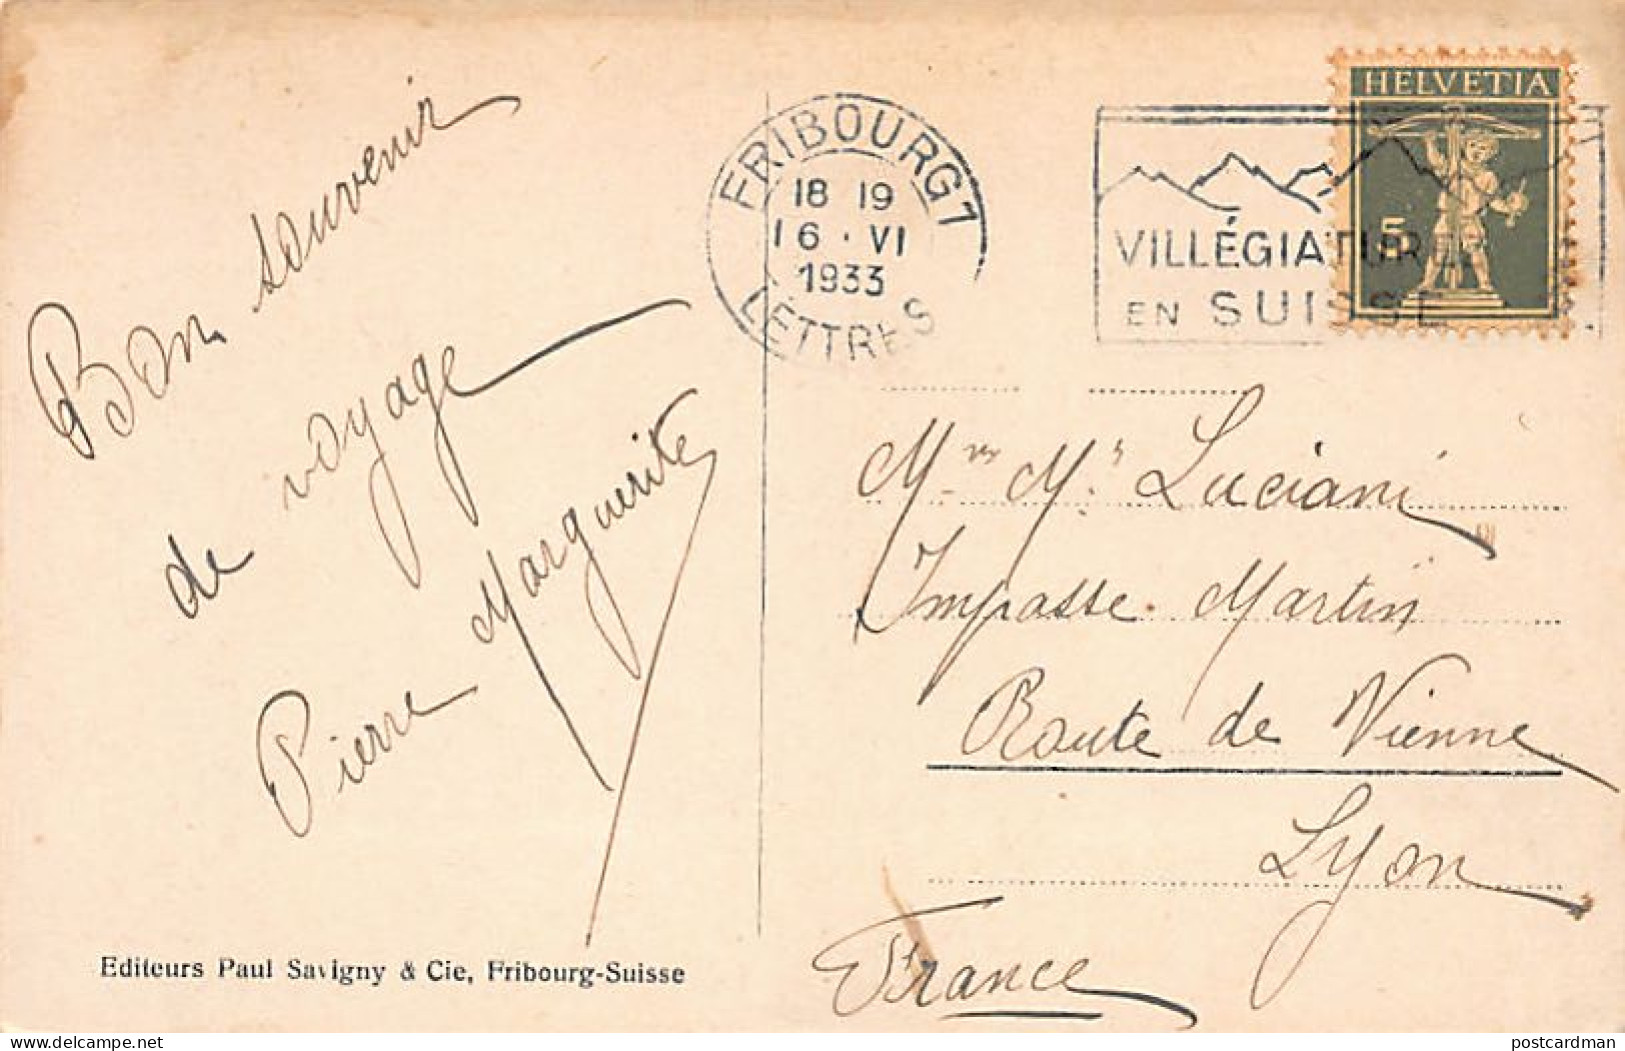 Bon souvenir
de voyage
Pierre Marguerite
Editeurs Paul Savigny & Cie, Fribourg-Suisse
FRIBOURG 1
18 19
16 · VI
1933
LETTRES
VILLÉGIATURE
EN SUISSE
HELVETIA
5
Luciani
Impasse Martin
Route de Vienne
Lyon
France
delcampe.net
postcardman